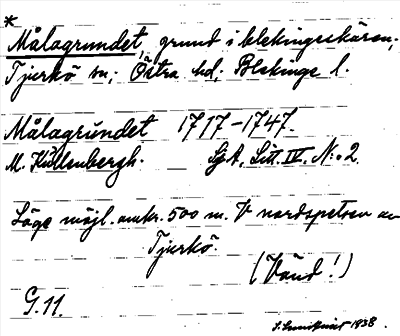 *
Målagrundet, grund i blekingeskären;
Tjurkö sn; Östra hd; Blekinge l.
Målagrundet 1717-1747.
M. Kullenbergh. SjA, Litt. IV. N:o 2
Läge möjl. omkr. 500 m. V nordspetsen av
Tjurkö.
(Vänd!)
G.11.
1938.